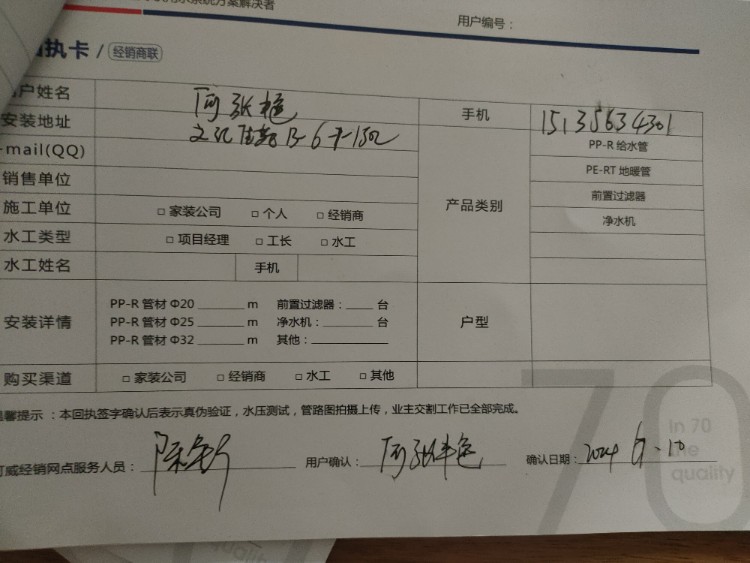 方案解决者
用户编号：
执卡 / 经销商联
户姓名
手机 15135634301
安装地址
-mail(QQ)
产品类别
PP-R 给水管
PE-RT 地暖管
前置过滤器
净水机
销售单位
施工单位 □ 家装公司 □ 个人 □ 经销商
水工类型 □ 项目经理 □ 工长 □ 水工
水工姓名 手机
安装详情
PP-R 管材 Φ20 ______ m 前置过滤器：____ 台
PP-R 管材 Φ25 ______ m 净水机：____ 台
PP-R 管材 Φ32 ______ m 其他：________
户型
购买渠道 □ 家装公司 □ 经销商 □ 水工 □ 其他
温馨提示：本回执签字确认后表示真伪验证，水压测试，管路图拍摄上传，业主交割工作已全部完成。
威经销网点服务人员： 用户确认： 确认日期：2024
70
in 70
the
quality